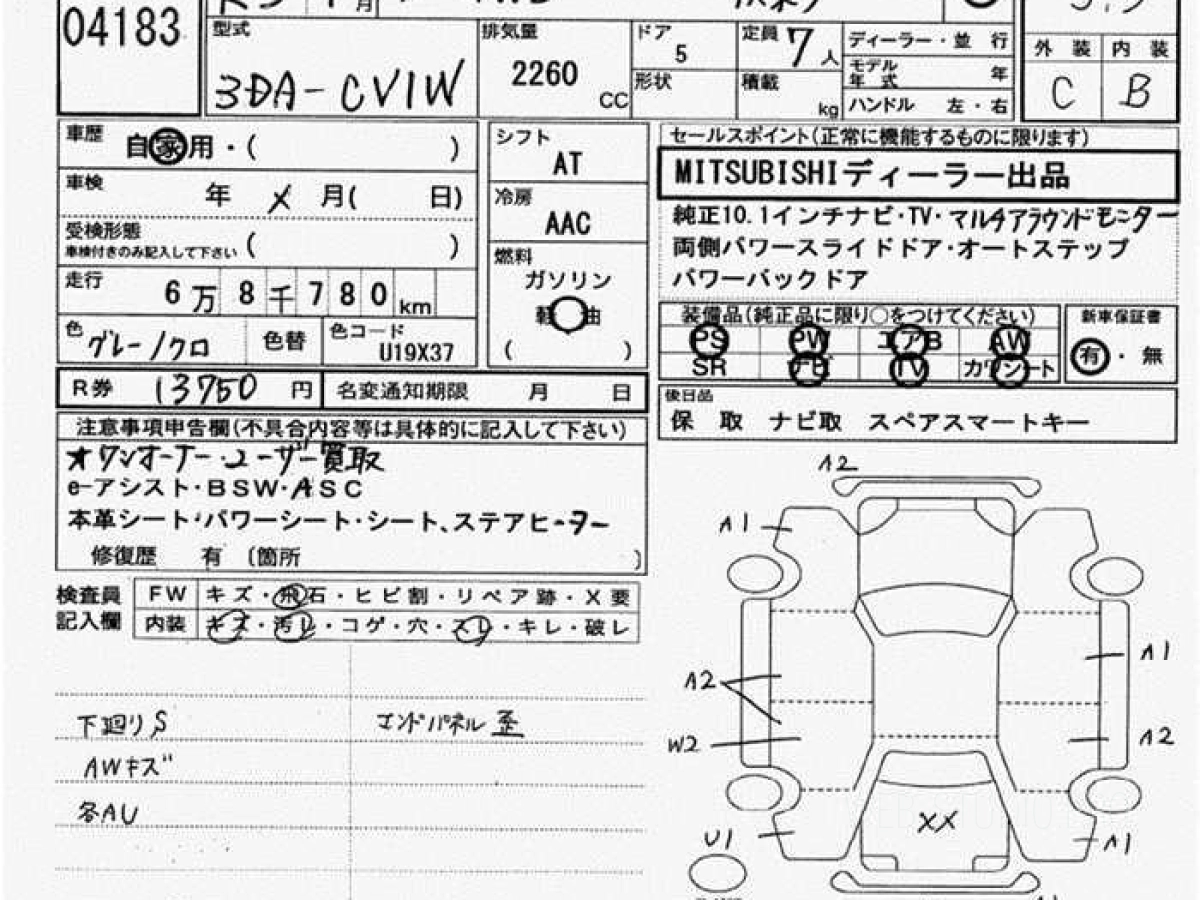 04183
月
型式
3DA-CV1W
排気量
2260
CC
ドア
5
形状
定員
7人
積載
kg
ディーラー・並 行
モデル
年 式
年
ハンドル 左・右
外 装
内 装
C
B
車歴
自家用・( )
車検
年 メ 月( 日)
受検形態
車検付きのみ記入して下さい
( )
走行
6万8千780km
色
グレー/クロ
色替
色コード
U19X37
シフト
AT
冷房
AAC
燃料
ガソリン
軽 油
( )
セールスポイント(正常に機能するものに限ります)
MITSUBISHIディーラー出品
純正10.1インチナビ・TV・マルチアラウンドモニター
両側パワースライドドア・オートステップ
パワーバックドア
装備品(純正品に限り○をつけてください)
PS PW エアB AW
SR ナビ TV カワシート
新車保証書
有・無
R券 13750 円
名変通知期限 月 日
後日品
保 取 ナビ取 スペアスマートキー
注意事項申告欄(不具合内容等は具体的に記入して下さい)
★ワンオーナー・ユーザー買取
e-アシスト・BSW・ASC
本革シート・パワーシート・シート、ステアヒーター
修復歴 有 (箇所 )
検査員
記入欄
FW キズ・飛石・ヒビ割・リペア跡・X要
内装 キズ・汚レ・コゲ・穴・スレ・キレ・破レ
下廻りS
エンドパネル歪
AWキズ
各AU
A2
A1
A2
W2
U1
A1
A2
A1
XX